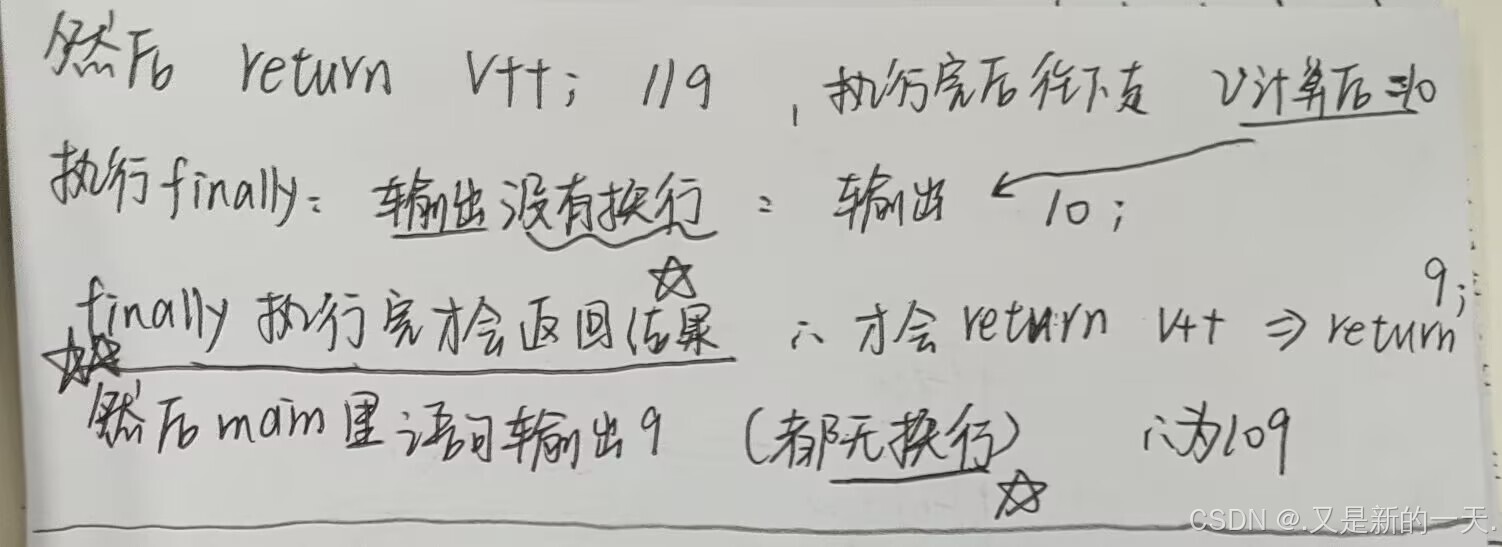 然后 return v++; //9 , 执行完后往下走 v计算后=10
执行finally: 输出没有换行 : 输出 10;
finally 执行完才会返回结果 ∴ 才会 return v++ ⇒ return 9;
然后main里语句输出9 (都无换行) ∴为109
CSDN @.又是新的一天.